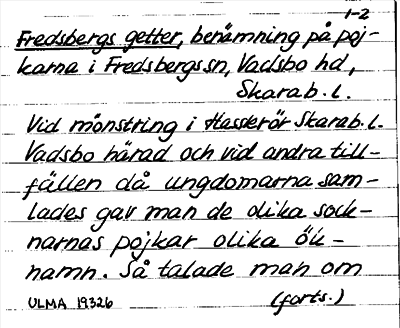 1-2
Fredsbergs getter, benämning på poj-
karna i Fredsbergs sn, Vadsbo hd,
Skarab. l.
Vid mönstring i Hasslerör Skarab. l.
Vadsbo härad och vid andra till-
fällen då ungdomarna sam-
lades gav man de olika sock-
narnas pojkar olika ök-
namn. Så talade man om
ULMA 19326 (forts.)